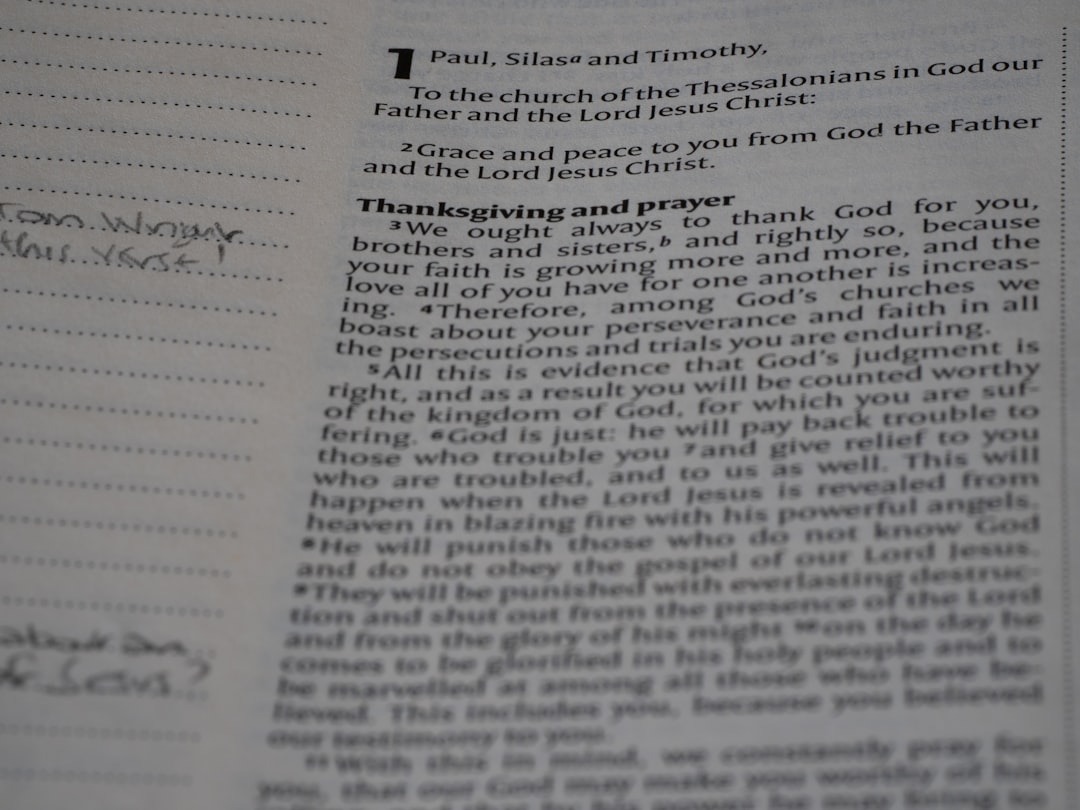 Tom Wright
this verse!
about an
of Jesus?
1 Paul, Silasᵃ and Timothy,
To the church of the Thessalonians in God our
Father and the Lord Jesus Christ:
²Grace and peace to you from God the Father
and the Lord Jesus Christ.
Thanksgiving and prayer
³We ought always to thank God for you,
brothers and sisters,ᵇ and rightly so, because
your faith is growing more and more, and the
love all of you have for one another is increas-
ing. ⁴Therefore, among God's churches we
boast about your perseverance and faith in all
the persecutions and trials you are enduring.
⁵All this is evidence that God's judgment is
right, and as a result you will be counted worthy
of the kingdom of God, for which you are suf-
fering. ⁶God is just: he will pay back trouble to
those who trouble you ⁷and give relief to you
who are troubled, and to us as well. This will
happen when the Lord Jesus is revealed from
heaven in blazing fire with his powerful angels.
⁸He will punish those who do not know God
and do not obey the gospel of our Lord Jesus.
⁹They will be punished with everlasting destruc-
tion and shut out from the presence of the Lord
and from the glory of his might ¹⁰on the day he
comes to be glorified in his holy people and to
be marvelled at among all those who have be-
lieved. This includes you, because you believed
our testimony to you.
¹¹With this in mind, we constantly pray for
you, that our God may make you worthy of his